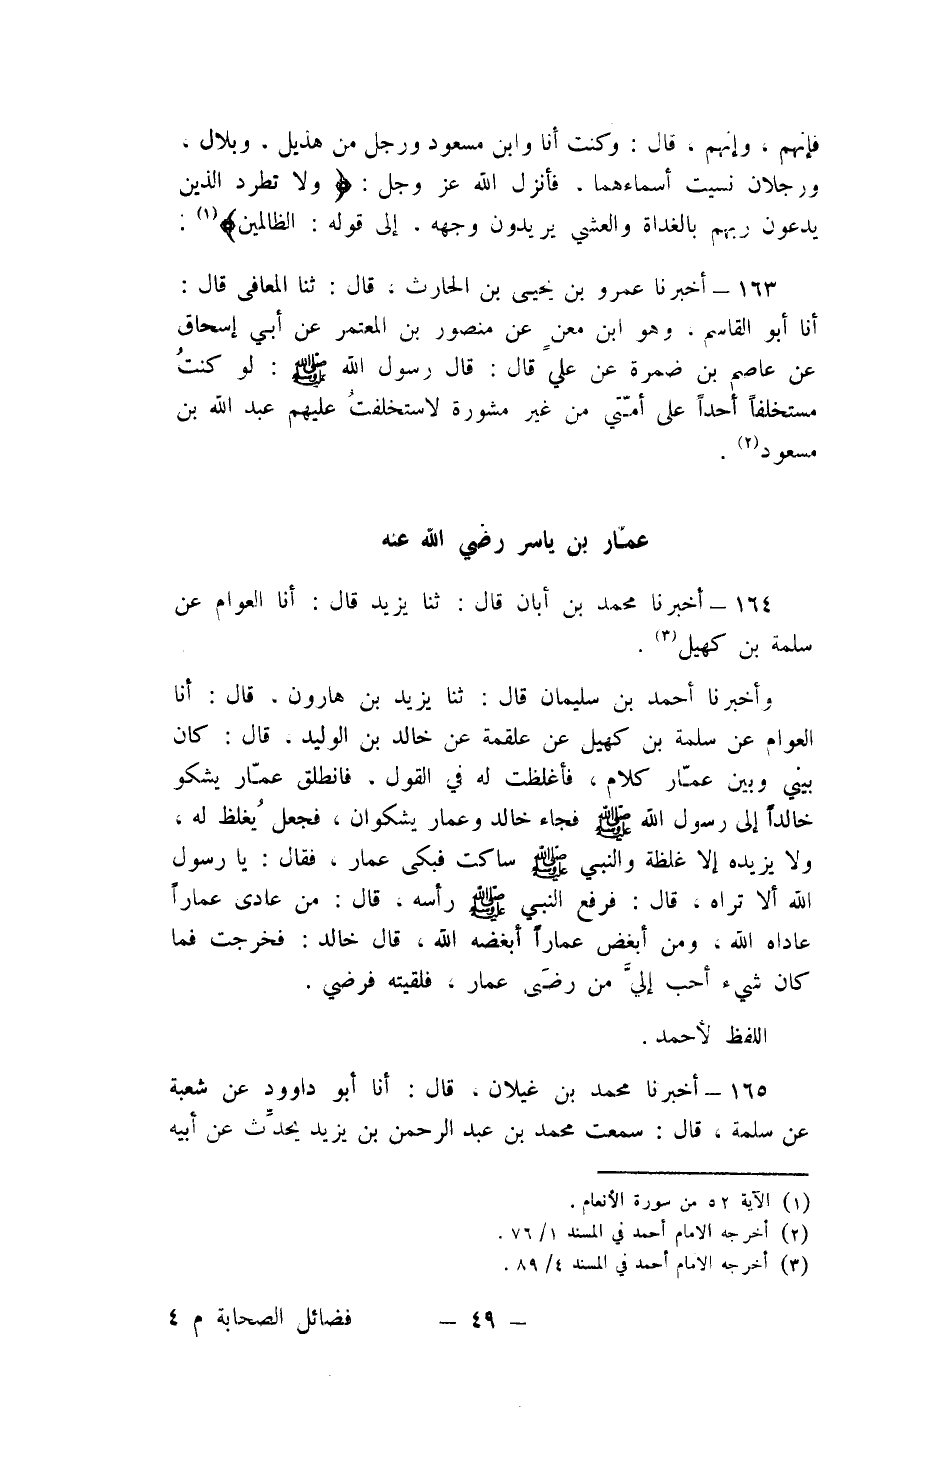 فإنهم ، وإنهم ، قال : وكنت أنا وابن مسعود ورجل من هذيل . وبلال ،
ورجلان نسيت أسماءهما . فأنزل الله عز وجل : ﴿ ولا تطرد الذين
يدعون ربهم بالغداة والعشي يريدون وجهه . إلى قوله : الظالمين﴾(١) :
١٦٣ – أخبرنا عمرو بن يحيى بن الحارث ، قال : ثنا المعافى قال :
أنا أبو القاسم . وهو ابن معنٍ عن منصور بن المعتمر عن أبي إسحاق
عن عاصم بن ضمرة عن علي قال : قال رسول الله ﷺ : لو كنتُ
مستخلفاً أحداً على أمّتي من غير مشورة لاستخلفتُ عليهم عبد الله بن
مسعود(٢) .
عمّار بن ياسر رضي الله عنه
١٦٤ – أخبرنا محمد بن أبان قال : ثنا يزيد قال : أنا العوام عن
سلمة بن كهيل(٣) .
وأخبرنا أحمد بن سليمان قال : ثنا يزيد بن هارون . قال : أنا
العوام عن سلمة بن كهيل عن علقمة عن خالد بن الوليد . قال : كان
بيني وبين عمّار كلام ، فأغلظت له في القول . فانطلق عمّار يشكو
خالداً إلى رسول الله ﷺ فجاء خالد وعمار يشكوان ، فجعل يُغلظ له ،
ولا يزيده إلا غلظة والنبي ﷺ ساكت فبكى عمار ، فقال : يا رسول
الله ألا تراه ، قال : فرفع النبي ﷺ رأسه ، قال : من عادى عماراً
عاداه الله ، ومن أبغض عماراً أبغضه الله ، قال خالد : فخرجت فما
كان شيء أحب إليَّ من رضَى عمار ، فلقيته فرضي .
اللفظ لأحمد .
١٦٥ – أخبرنا محمد بن غيلان ، قال : أنا أبو داوود عن شعبة
عن سلمة ، قال : سمعت محمد بن عبد الرحمن بن يزيد يحدِّث عن أبيه
(١) الآية ٥٢ من سورة الأنعام .
(٢) أخرجه الامام أحمد في المسند ١/ ٧٦ .
(٣) أخرجه الامام أحمد في المسند ٤/ ٨٩ .
– ٤٩ – فضائل الصحابة م ٤